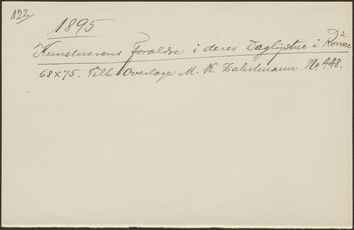 122.
1895
Kunstnerens Forældre i deres Dagligstue i Rønne
68 x 75. Tilh. Overlæge M. K. Zahrtmann No 448.